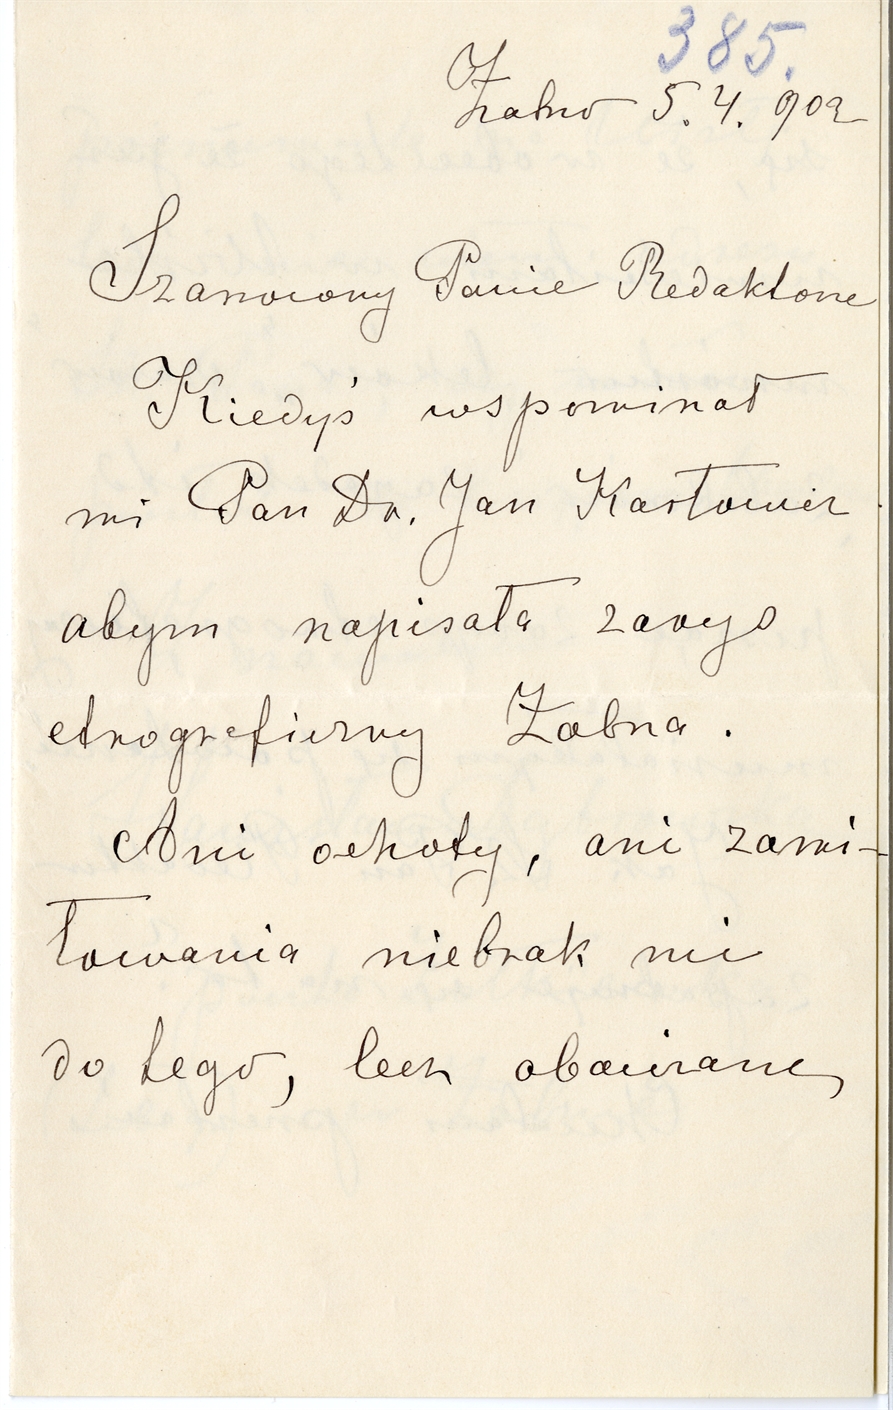 385.
Żabno 5.4.902
Szanowny Panie Redaktorze
Kiedyś wspominał
mi Pan Dr. Jan Karłowicz
abym napisała zarys
etnograficzny Żabna.
Ani ochoty, ani zami-
łowania niebrak mi
do tego, lecz obawiam